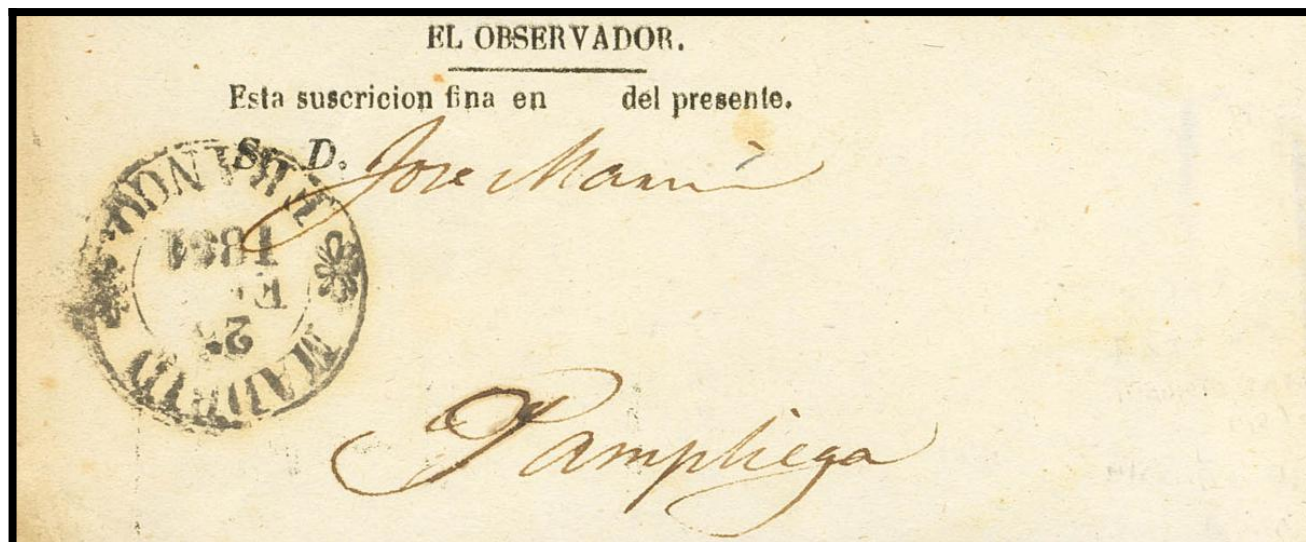 EL OBSERVADOR.
Esta suscricion fina en del presente.
S. D. Jose Maria
FRANQU.
MADRID
Pampliega